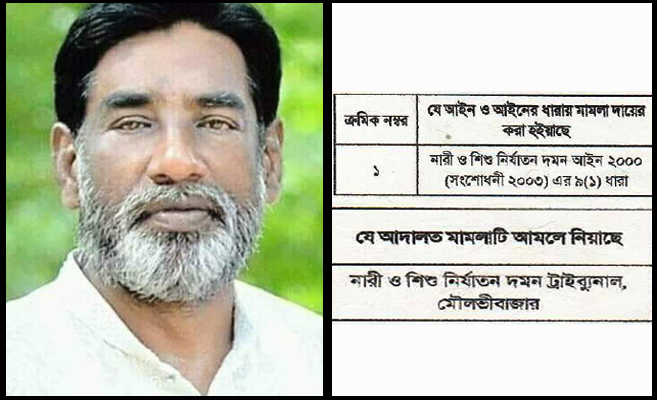 ক্রমিক নম্বর
যে আইন ও আইনের ধারায় মামলা দায়ের
করা হইয়াছে
১
নারী ও শিশু নির্যাতন দমন আইন ২০০০
(সংশোধনী ২০০৩) এর ৯(১) ধারা
যে আদালত মামলাটি আমলে নিয়াছে
নারী ও শিশু নির্যাতন দমন ট্রাইব্যুনাল,
মৌলভীবাজার